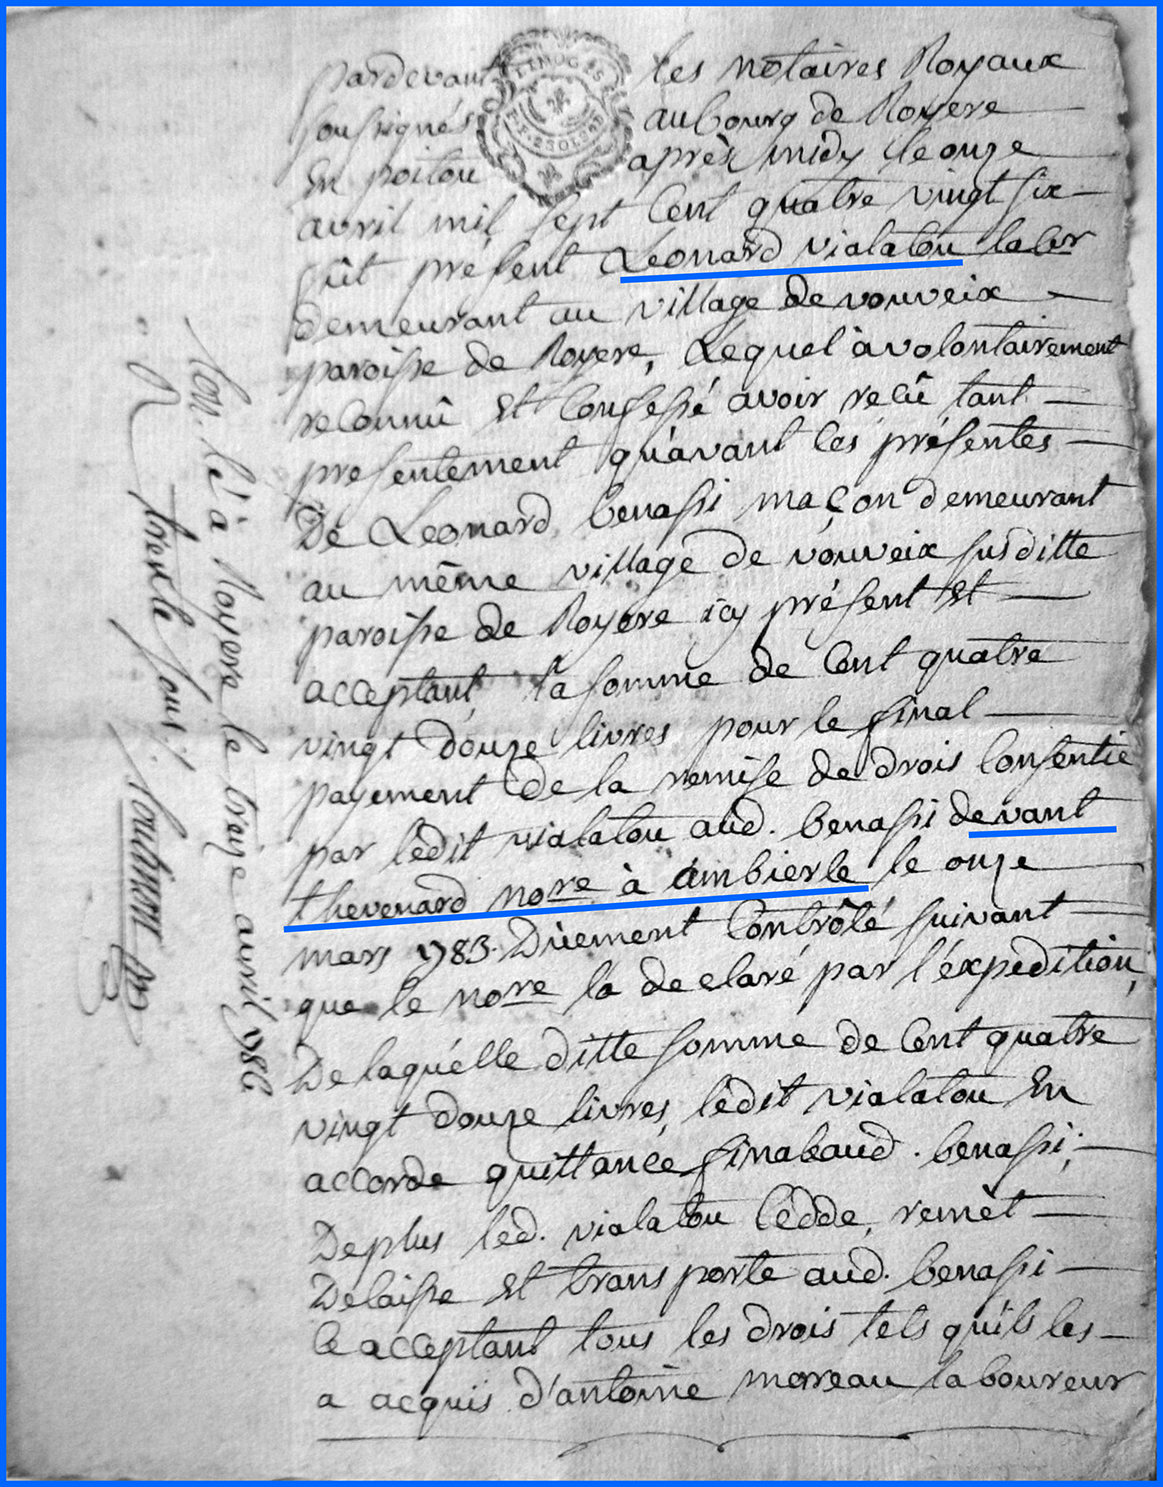 pardevant les notaires Royaux
soussignés au bourg de Royere
En poitou après midy le onze
avril mil sept Cent quatre vingt six
fût présent Leonard vialatou labor
demeurant au village de vouveix
paroisse de Royere, Lequel à volontairement
reconnû Et Confessé avoir recû tant
presentement qu'avant Ces présentes
De Leonard benassi maçon demeurant
au même village de vouveix susditte
paroisse de Royere icy présent Et
acceptant, la somme de Cent quatre
vingt douze livres pour le final
payement de la remise de drois Consentie
par lèdit vialatou aud. benassi devant
thevenard nore à ambierle le onze
mars 1783. Dûement Contrôlé suivant
que le nore la declaré par l'éxpedition,
De laquélle ditte somme de Cent quatre
vingt douze livres, lèdit vialatou En
accorde quittance finale aud. benassi;
De plus léd. vialatou Cèdde, remèt
Delaisse Et transporte aud. benassi
Ce acceptant tous les drois tels qu'ils les
a acquis d'antoine moreau laboureur
Con. lé à Royere le treize avril 1786
R trente sous
LIMOGES